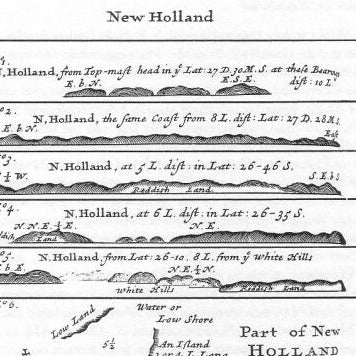 New Holland
1.
N, Holland, from Top-mast head in yͤ Lat: 27 D. 30 M. S. at these Bearings
E. b. N.
E. S. E.
dist: 10 L.
o2.
N, Holland, the same Coast from 8 L. dist: Lat: 27 D. 28 M. S.
E. b. N.
East
o3.
N. Holland, at 5 L. dist: in Lat: 26-46 S.
½ W.
S. E. b S
Reddish Land
o4.
N. Holland, at 6 L. dist: in Lat: 26-35 S.
N. N. E. ½ E.
N E.
Land
o5.
N. Holland, from Lat: 26-10. 8 L. from yͤ White Hills
E. b N.
N. E. ½ N.
White Hills
Reddish Land
o6.
Low Land
Water or
Low Shore
5½
An Island
Part of New
HOLLAND